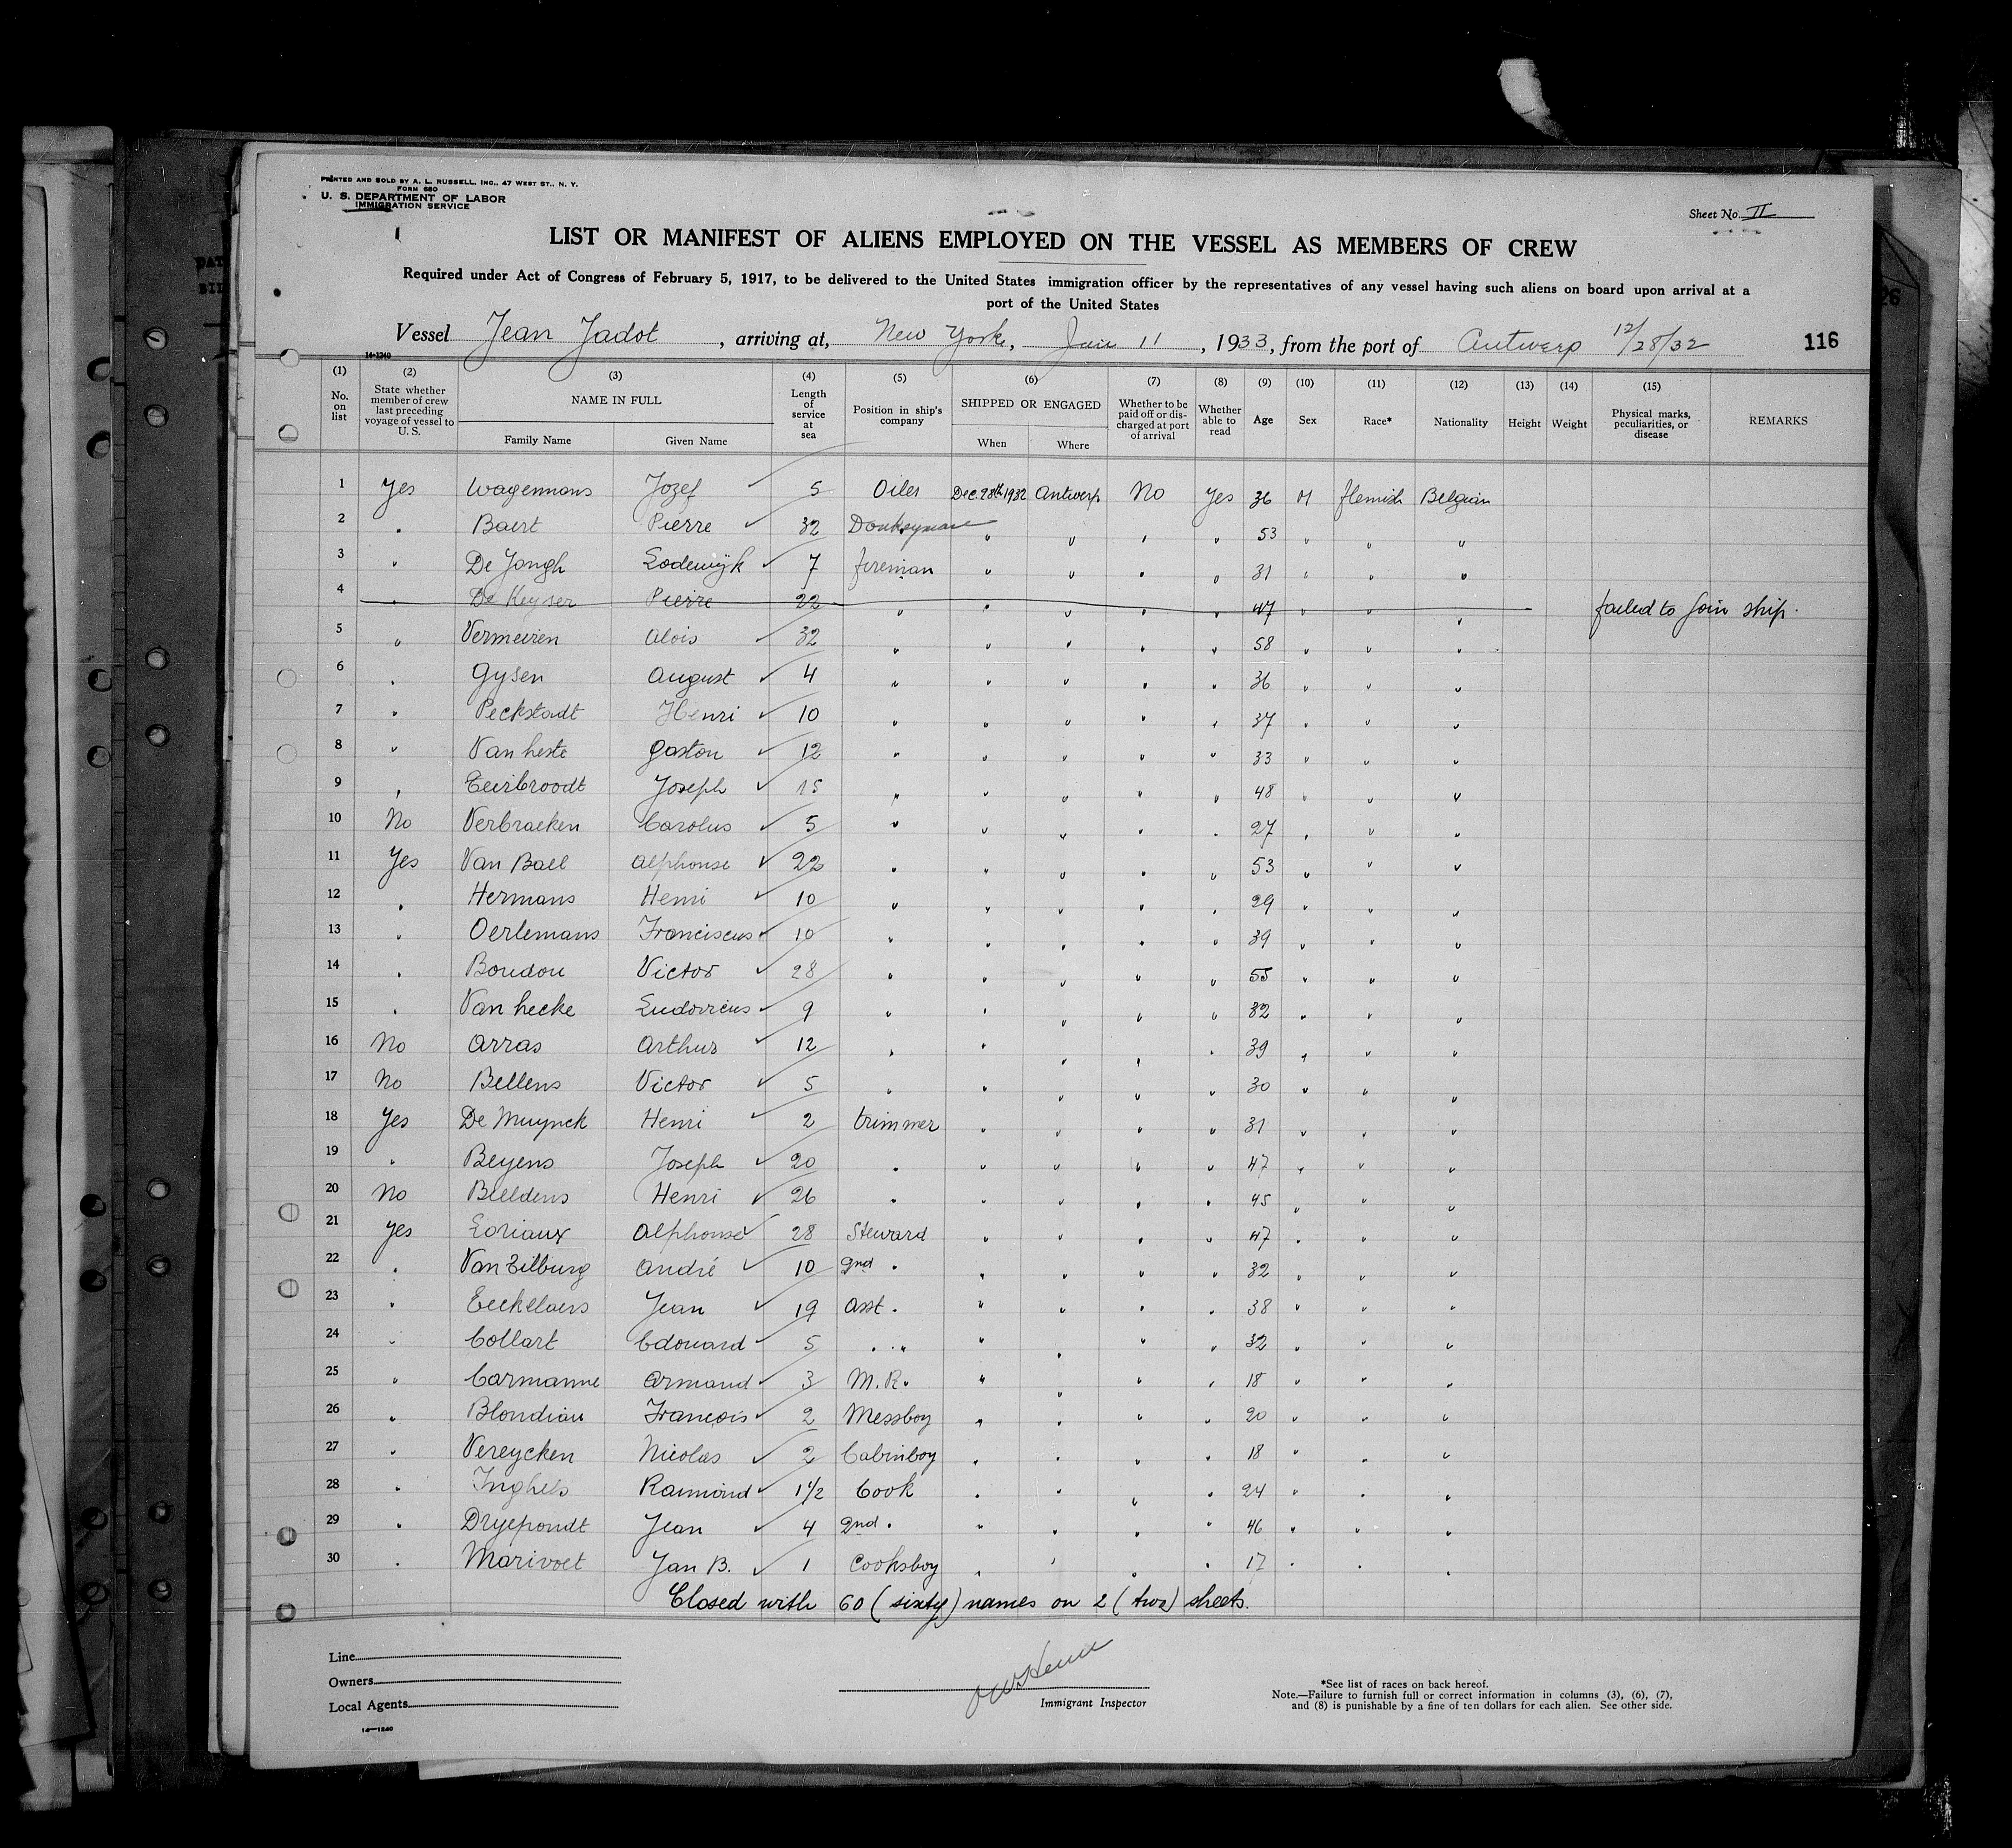 PRINTED AND SOLD BY A. L. RUSSELL, INC., 47 WEST ST., N. Y.
FORM 680
U. S. DEPARTMENT OF LABOR
IMMIGRATION SERVICE
Sheet No. II
LIST OR MANIFEST OF ALIENS EMPLOYED ON THE VESSEL AS MEMBERS OF CREW
Required under Act of Congress of February 5, 1917, to be delivered to the United States immigration officer by the representatives of any vessel having such aliens on board upon arrival at a
port of the United States
Vessel Jean Jadot, arriving at, New York, Jan 11, 1933, from the port of Antwerp 12/28/32 116
14-1240
(1) No. on list
(2) State whether member of crew last preceding voyage of vessel to U. S.
(3) NAME IN FULL Family Name Given Name
(4) Length of service at sea
(5) Position in ship's company
(6) SHIPPED OR ENGAGED When Where
(7) Whether to be paid off or discharged at port of arrival
(8) Whether able to read
(9) Age
(10) Sex
(11) Race*
(12) Nationality
(13) Height
(14) Weight
(15) Physical marks, peculiarities, or disease
REMARKS
1 Yes Wagemans Jozef 5 Oiler Dec. 28th 1932 Antwerp No Yes 36 M Flemish Belgian
2 " Baert Pierre 32 Donkeyman " " " " 53 " " "
3 " De Jongh Lodewijk 7 fireman " " " " 31 " " "
4 " De Keyser Pierre 22 " " " " " 47 " " " failed to join ship.
5 " Vermeiren Alois 32 " " " " " 58 " " "
6 " Gysen August 4 " " " " " 36 " " "
7 " Peckstadt Henri 10 " " " " " 37 " " "
8 " Van heste Gaston 12 " " " " " 33 " " "
9 " Teirbroodt Joseph 15 " " " " " 48 " " "
10 No Verbraeken Carolus 5 " " " " " 27 " " "
11 Yes Van Bael Alphonse 22 " " " " " 53 " " "
12 " Hermans Henri 10 " " " " " 29 " " "
13 " Oerlemans Franciscus 10 " " " " " 39 " " "
14 " Boudou Victor 28 " " " " " 55 " " "
15 " Van hecke Ludovicus 9 " " " " " 32 " " "
16 No Arras Arthur 12 " " " " " 39 " " "
17 No Bellens Victor 5 " " " " " 30 " " "
18 Yes De Muynck Henri 2 trimmer " " " " 31 " " "
19 " Beyens Joseph 20 " " " " " 47 " " "
20 No Beeldens Henri 26 " " " " " 45 " " "
21 yes Loriaux Alphonse 28 Steward " " " " 47 " " "
22 " Van Tilburg André 10 2nd " " " " " 32 " " "
23 " Eeckelaers Jean 19 Asst. " " " " 38 " " "
24 " Collart Edouard 5 " " " " " " 32 " " "
25 " Carmanne Armand 3 M.R. " " " " 18 " " "
26 " Blondiau François 2 Messboy " " " " 20 " " "
27 " Vereycken Nicolas 2 Cabinboy " " " " 18 " " "
28 " Inghels Raimond 1 1/2 Cook " " " " 24 " " "
29 " Dryepondt Jean 4 2nd " " " " " 46 " " "
30 " Marivoet Jan B. 1 Cooksboy " " " " 17 " " "
Closed with 60 (sixty) names on 2 (two) sheets.
Line
Owners
Local Agents
14-1240
Immigrant Inspector
*See list of races on back hereof.
Note.—Failure to furnish full or correct information in columns (3), (6), (7),
and (8) is punishable by a fine of ten dollars for each alien. See other side.